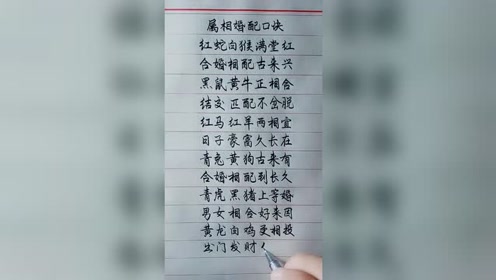 属相婚配口诀
红蛇白猴满堂红
合婚相配古来兴
黑鼠黄牛正相合
结交匹配不岔脱
红马红羊两相宜
日子豪富久长在
青兔黄狗古来有
合婚相配到长久
青虎黑猪上等婚
男女相合好来因
黄龙白鸡更相投
出门发财